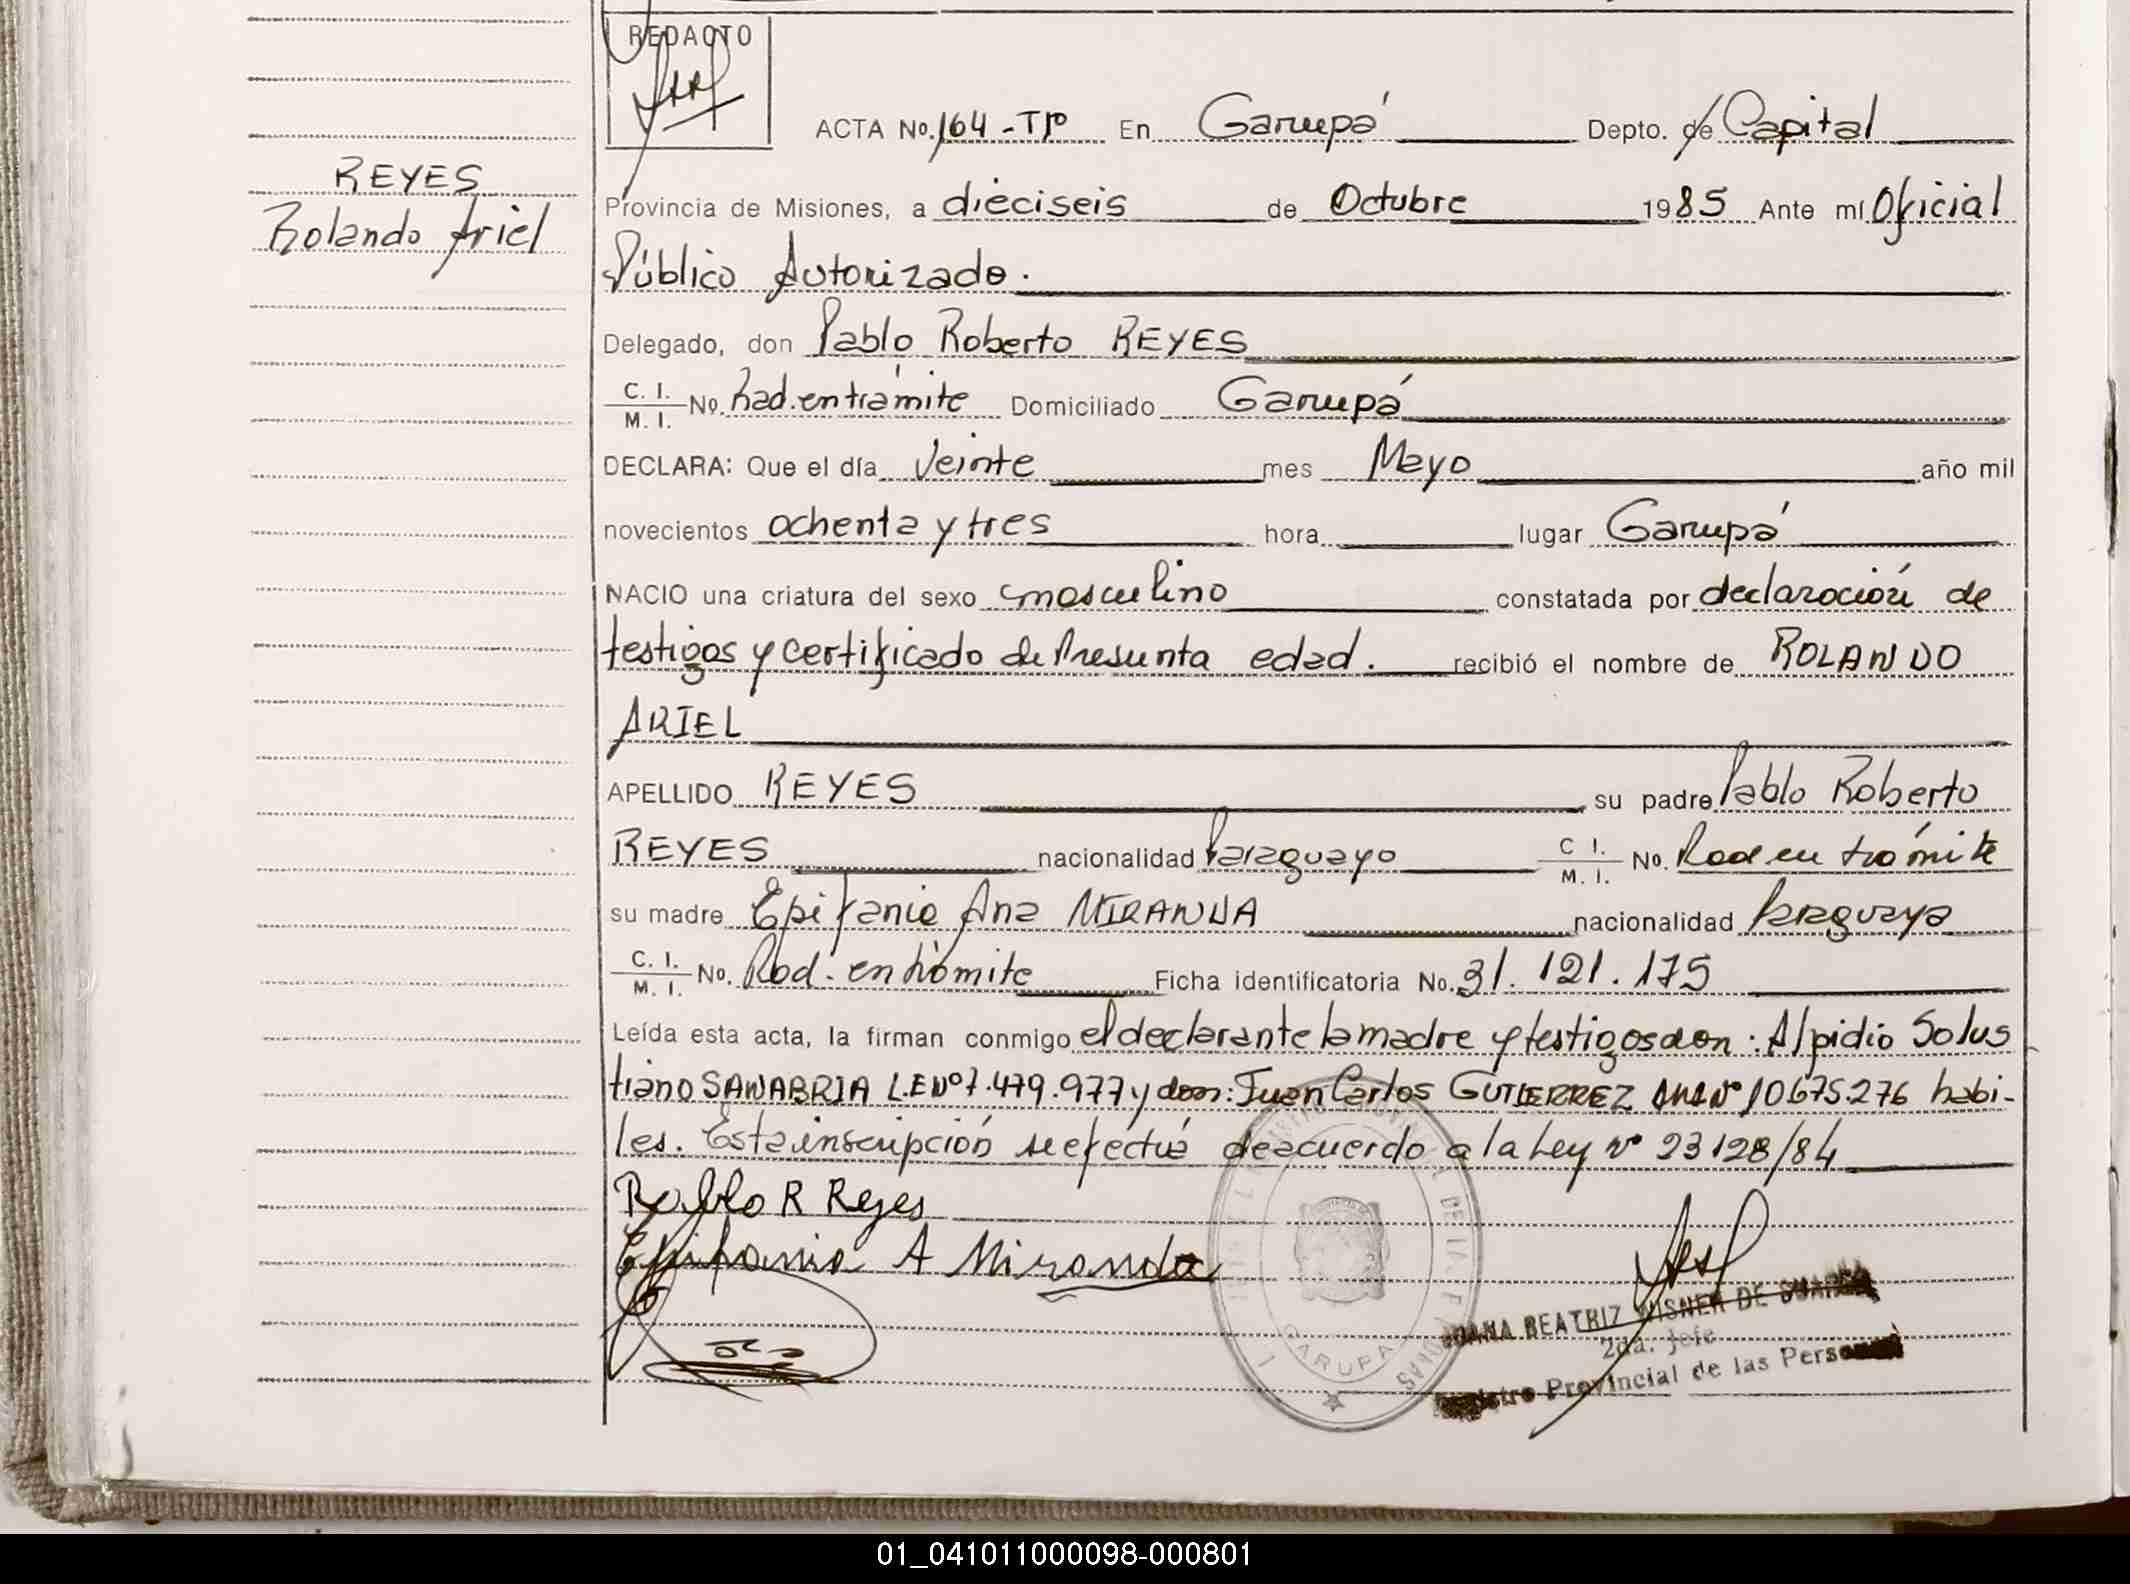 REDACTO
ACTA No. 164-Tº En Garupá Depto. de Capital
REYES
Rolando Ariel
Provincia de Misiones, a dieciseis de Octubre 1985 Ante mí Oficial
Público Autorizado.
Delegado, don Pablo Roberto REYES
C. I.
M. I. No. Rad. en trámite Domiciliado Garupá
DECLARA: Que el día Veinte mes Mayo año mil
novecientos ochenta y tres hora lugar Garupá
NACIO una criatura del sexo masculino constatada por declaración de
testigos y certificado de Presunta edad. recibió el nombre de ROLANDO
ARIEL
APELLIDO REYES su padre Pablo Roberto
REYES nacionalidad Paraguayo C I. M. I. No. Rad en trámite
su madre Epifania Ana MIRANDA nacionalidad Paraguaya
C. I.
M. I. No. Rad. en trámite Ficha identificatoria No. 31.121.175
Leída esta acta, la firman conmigo el declarante la madre y testigos don: Alpidio Solus
tiano SANABRIA L.E Nº 7.479.977 y don: Juan Carlos GUTIERREZ DNI Nº 10675.276 habi-
les. Esta inscripción se efectúa de acuerdo a la Ley Nº 23128/84
Pablo R Reyes
Epifania A Miranda
GARUPA
JUANA BEATRIZ WISNER DE SUAREZ
2da. Jefe
Registro Provincial de las Personas
01_041011000098-000801